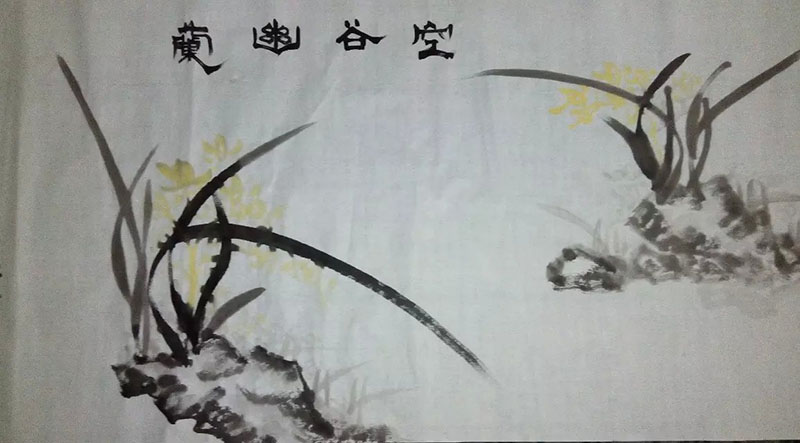 空谷幽蘭